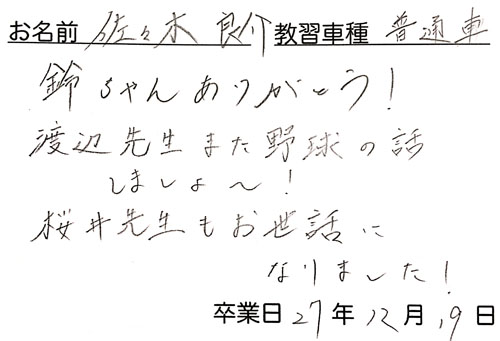 お名前 佐々木 良介 教習車種 普通車
鈴ちゃんありがとう!
渡辺先生また野球の話
しましょ〜!
桜井先生もお世話に
なりました!
卒業日 27年 12月 19日